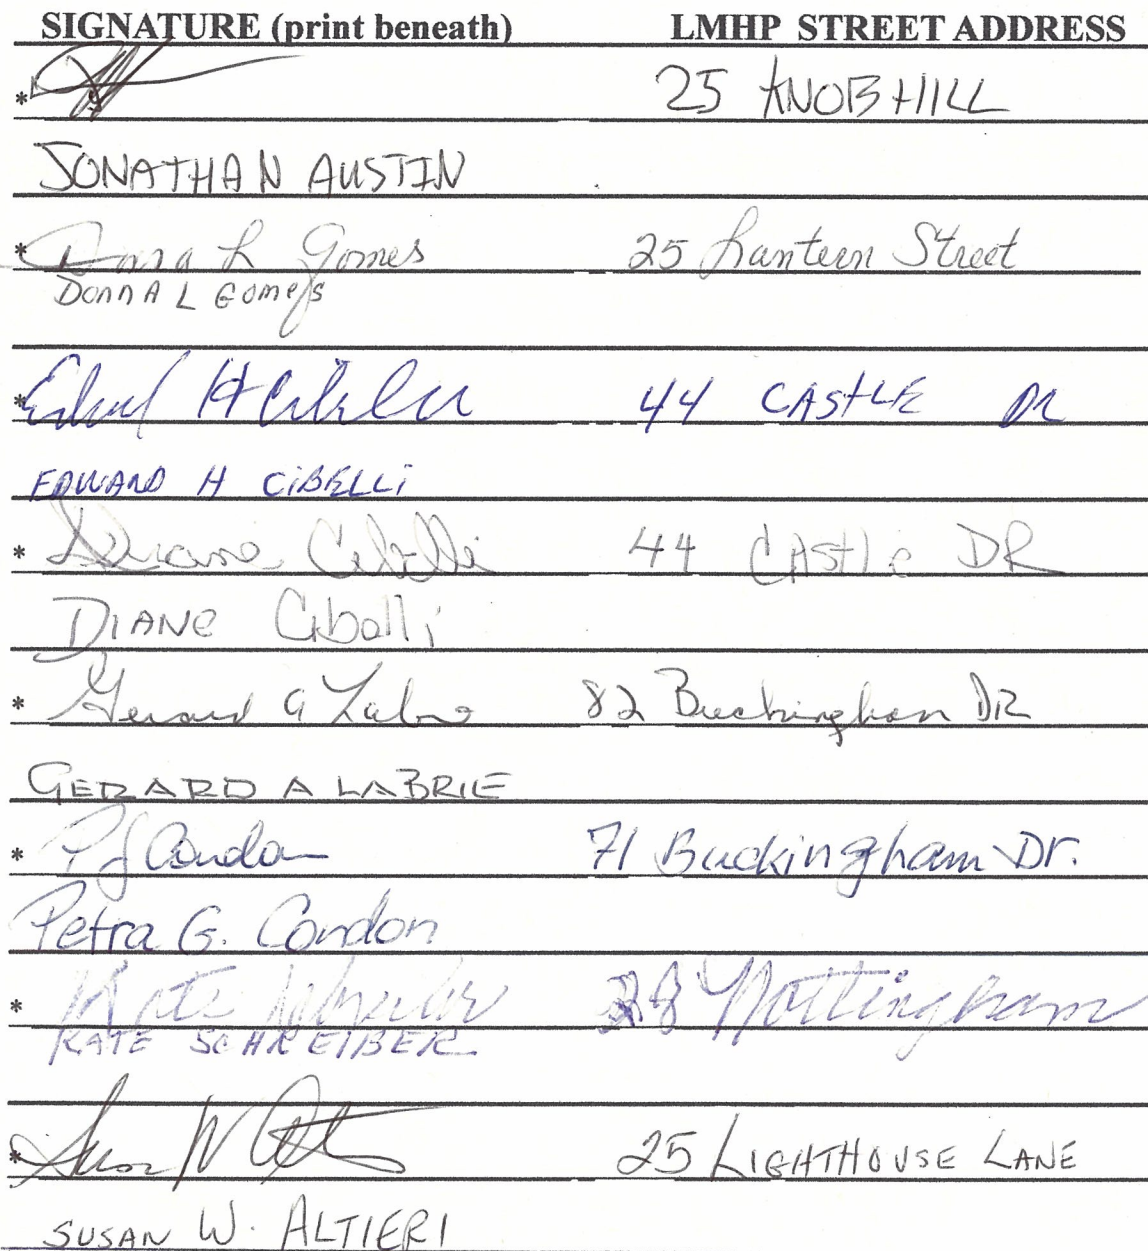 SIGNATURE (print beneath) LMHP STREET ADDRESS
* 25 KNOB HILL
JONATHAN AUSTIN
* Donna L Gomes 25 Lantern Street
DonnA L Gomes
* Edward H Cibelli 44 CASTLE DR
EDWARD H CiBELLi
* Diane Cibelli 44 CAStle DR
DIANe Cibelli
* Gerard A Labrie 82 Buckingham DR
GERARD A LABRIE
* PJ Condon 71 Buckingham Dr.
Petra G. Condon
* Kate Schreiber 28 Nottingham
KATE SCHREIBER
* Susan W 25 LIGHTHOUSE LANE
SUSAN W. ALTIERI